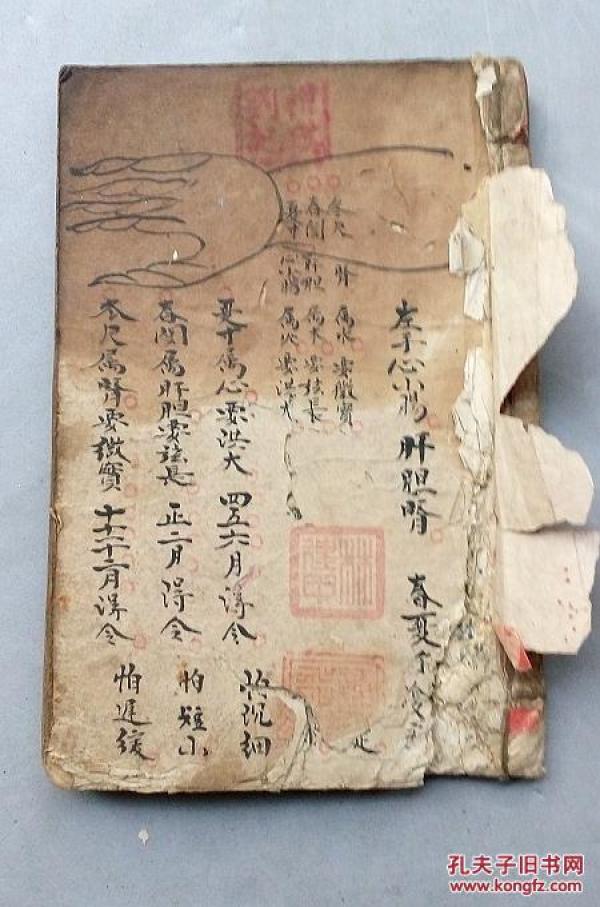 左手心小腸 肝胆腎 春夏
冬尺 腎 属水 要微實
春関 肝胆 属木 要弦長
夏寸 心小腸 属火 要洪大
夏寸属心要洪大 四五六月得令 怕沉細
春関属肝胆要弦長 正二月得令 怕短小
冬尺属腎要微實 十十一十二月得令 怕遲緩
孔夫子旧书网
www.kongfz.com